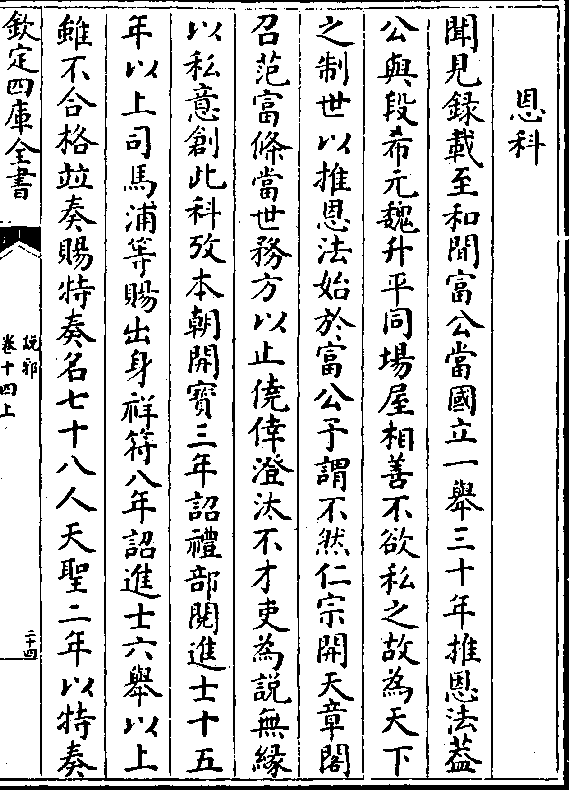 恩科
聞見録載至和間富公當國立一舉三十年推恩法葢
公與段希元魏升平同塲屋相善不欲私之故為天下
之制世以推恩法始於富公予謂不然仁宗開天章閣
召范富條當世務方以止僥倖澄汰不才吏為説無緣
以私意創此科攷本朝開寳三年詔禮部閲進士十五
年以上司馬浦等賜出身祥符八年詔進士六舉以上
雖不合格竝奏賜特奏名七十八人天聖二年以特奏
欽定四庫全書
説郛
卷十四上
二十四